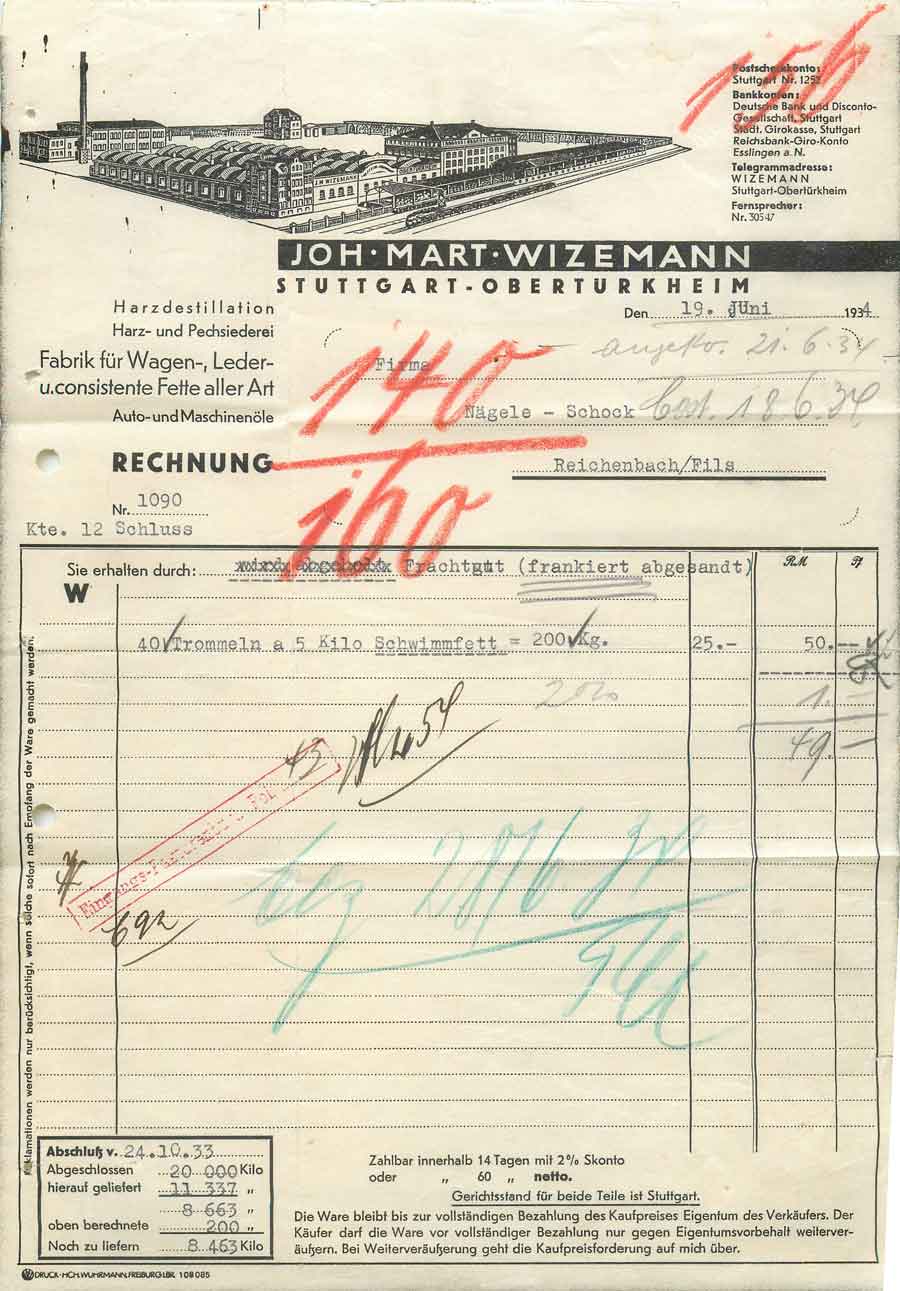 156
Postscheckkonto:
Stuttgart Nr. 1252
Bankkonten:
Deutsche Bank und Disconto-
Gesellschaft, Stuttgart
Städt. Girokasse, Stuttgart
Reichsbank-Giro-Konto
Esslingen a. N.
Telegrammadresse:
WIZEMANN
Stuttgart-Obertürkheim
Fernsprecher:
Nr. 30547
J.M. WIZEMANN
JOH·MART·WIZEMANN
STUTTGART-OBERTÜRKHEIM
Den 19. JUni 1934
Harzdestillation
Harz- und Pechsiederei
Fabrik für Wagen-, Leder-
u.consistente Fette aller Art
Auto- und Maschinenöle
RECHNUNG
Nr. 1090
Kte. 12 Schluss
140
160
21. 6. 34
Firma
Nägele - Schock
18.6.34
Reichenbach/Fils
Sie erhalten durch: Frachtgut (frankiert abgesandt)
RM Pf
W
40 Trommeln a 5 Kilo Schwimmfett = 200 Kg. 25.- 50.--
2% 1.-
49.-
43
692
Abschluß v. 24.10.33
Abgeschlossen 20 000 Kilo
hierauf geliefert 11 337 „
8 663 „
oben berechnete 200 „
Noch zu liefern 8 463 Kilo
Zahlbar innerhalb 14 Tagen mit 2% Skonto
oder „ 60 „ netto.
Gerichtsstand für beide Teile ist Stuttgart.
Die Ware bleibt bis zur vollständigen Bezahlung des Kaufpreises Eigentum des Verkäufers. Der
Käufer darf die Ware vor vollständiger Bezahlung nur gegen Eigentumsvorbehalt weiterver-
äußern. Bei Weiterveräußerung geht die Kaufpreisforderung auf mich über.
Reklamationen werden nur berücksichtigt, wenn solche sofort nach Empfang der Ware gemacht werden.
DRUCK·HCH.WUHRMANN, FREIBURG I.BR. 108085